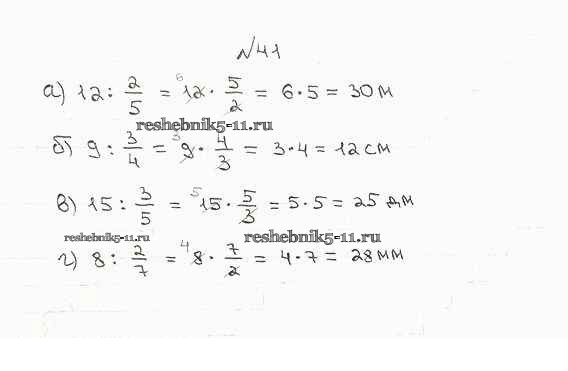 №41
а) 12 : 2/5 = 6 12 · 5/2 = 6 · 5 = 30 м
reshebnik5-11.ru
б) 9 : 3/4 = 3 9 · 4/3 = 3 · 4 = 12 см
в) 15 : 3/5 = 5 15 · 5/3 = 5 · 5 = 25 дм
reshebnik5-11.ru reshebnik5-11.ru
г) 8 : 2/7 = 4 8 · 7/2 = 4 · 7 = 28 мм